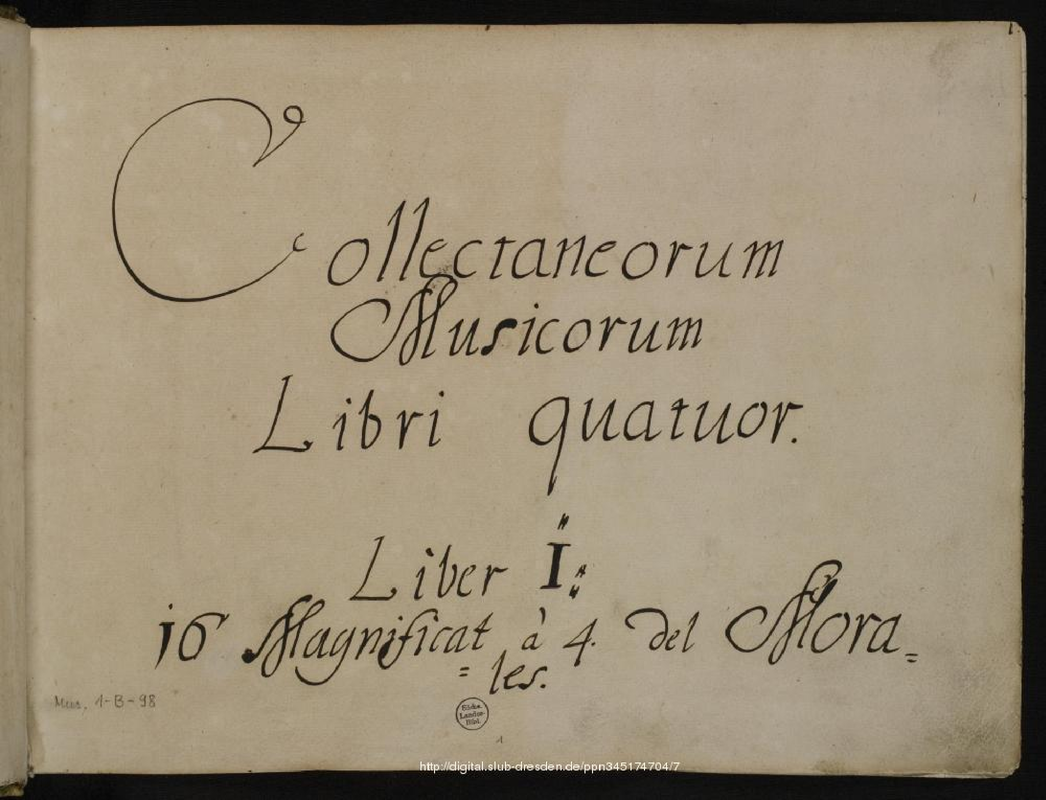 Collectaneorum
Musicorum
Libri quatuor.
Liber I.
16 Magnificat à 4. del Mora=
=les.
Mus. 1-B-98
Sächs.
Landes-
Bibl.
1
http://digital.slub-dresden.de/ppn345174704/7